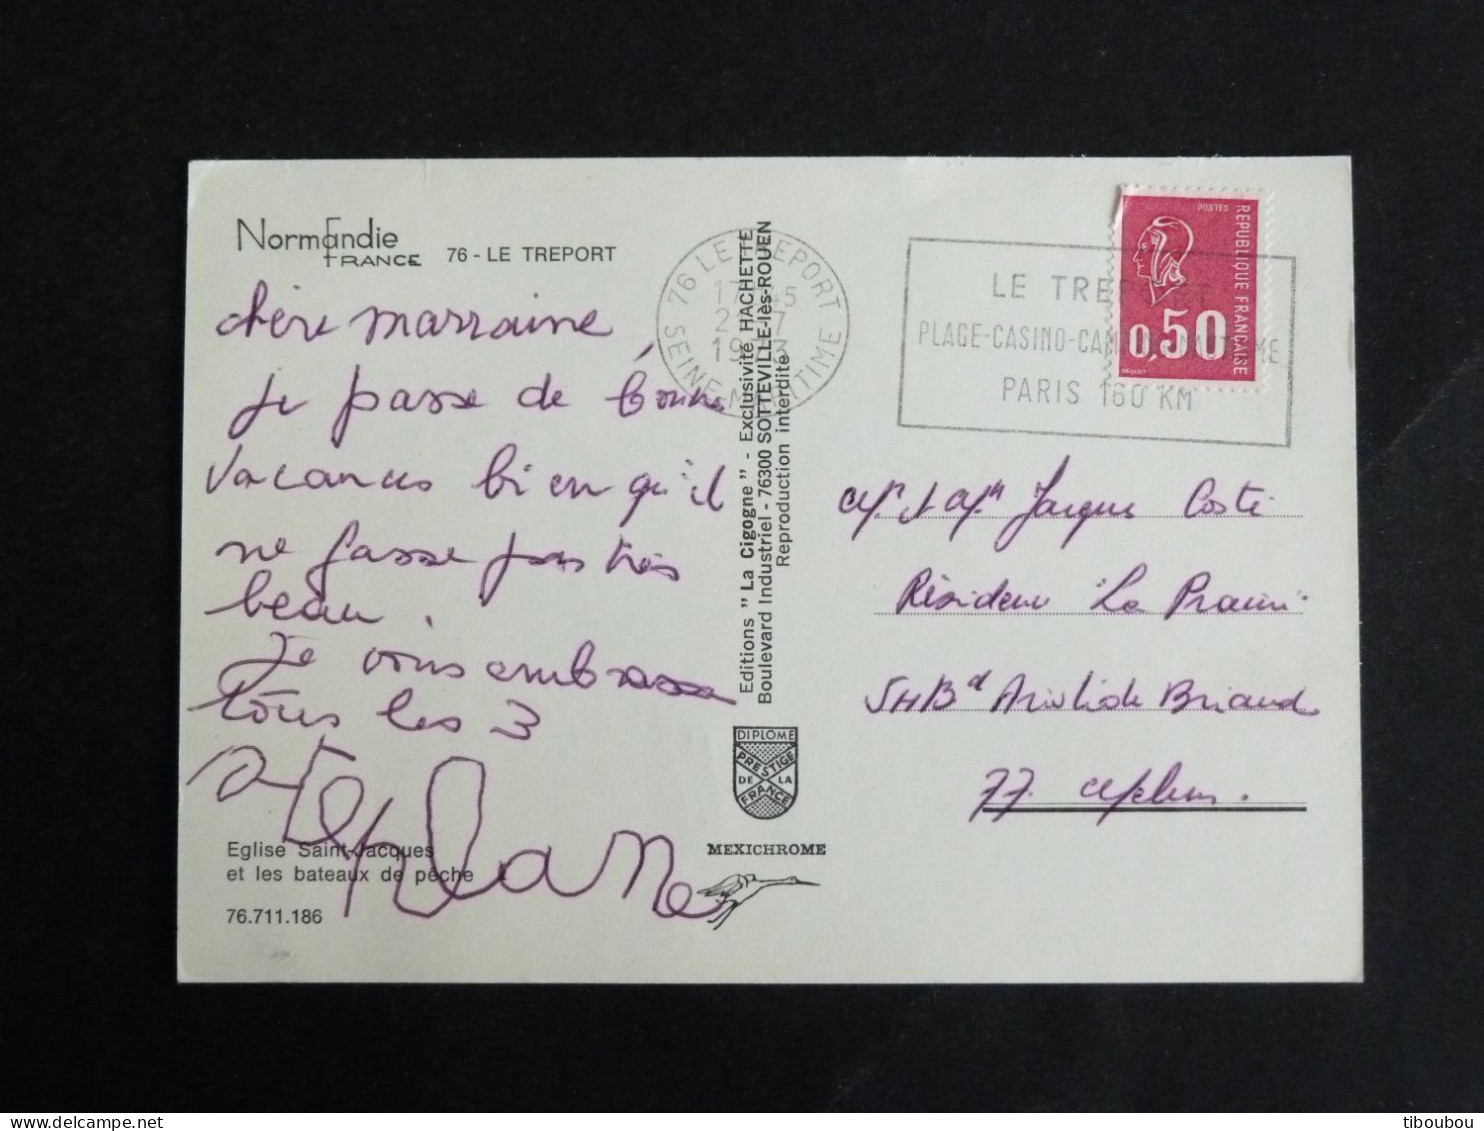 Normandie
FRANCE
76 - LE TREPORT
chère marraine
je passe de bonne
vacances bien qu'il
ne fasse pas très
beau.
Je vous embrasse
tous les 3
stephane
Eglise Saint-Jacques
et les bateaux de pêche
76.711.186
Editions "La Cigogne" - Exclusivité HACHETTE
Boulevard Industriel - 76300 SOTTEVILLE-lès-ROUEN
Reproduction interdite
DIPLOME
PRESTIGE
DE LA
FRANCE
MEXICHROME
76 LE TREPORT
SEINE-MARITIME
LE TREPORT
PLAGE-CASINO-
PARIS 160 KM
POSTES
REPUBLIQUE FRANÇAISE
0,50
Jacques Coste
Résidence "La Prairie"
54 Bd Aristide Briand
77
tiboubou